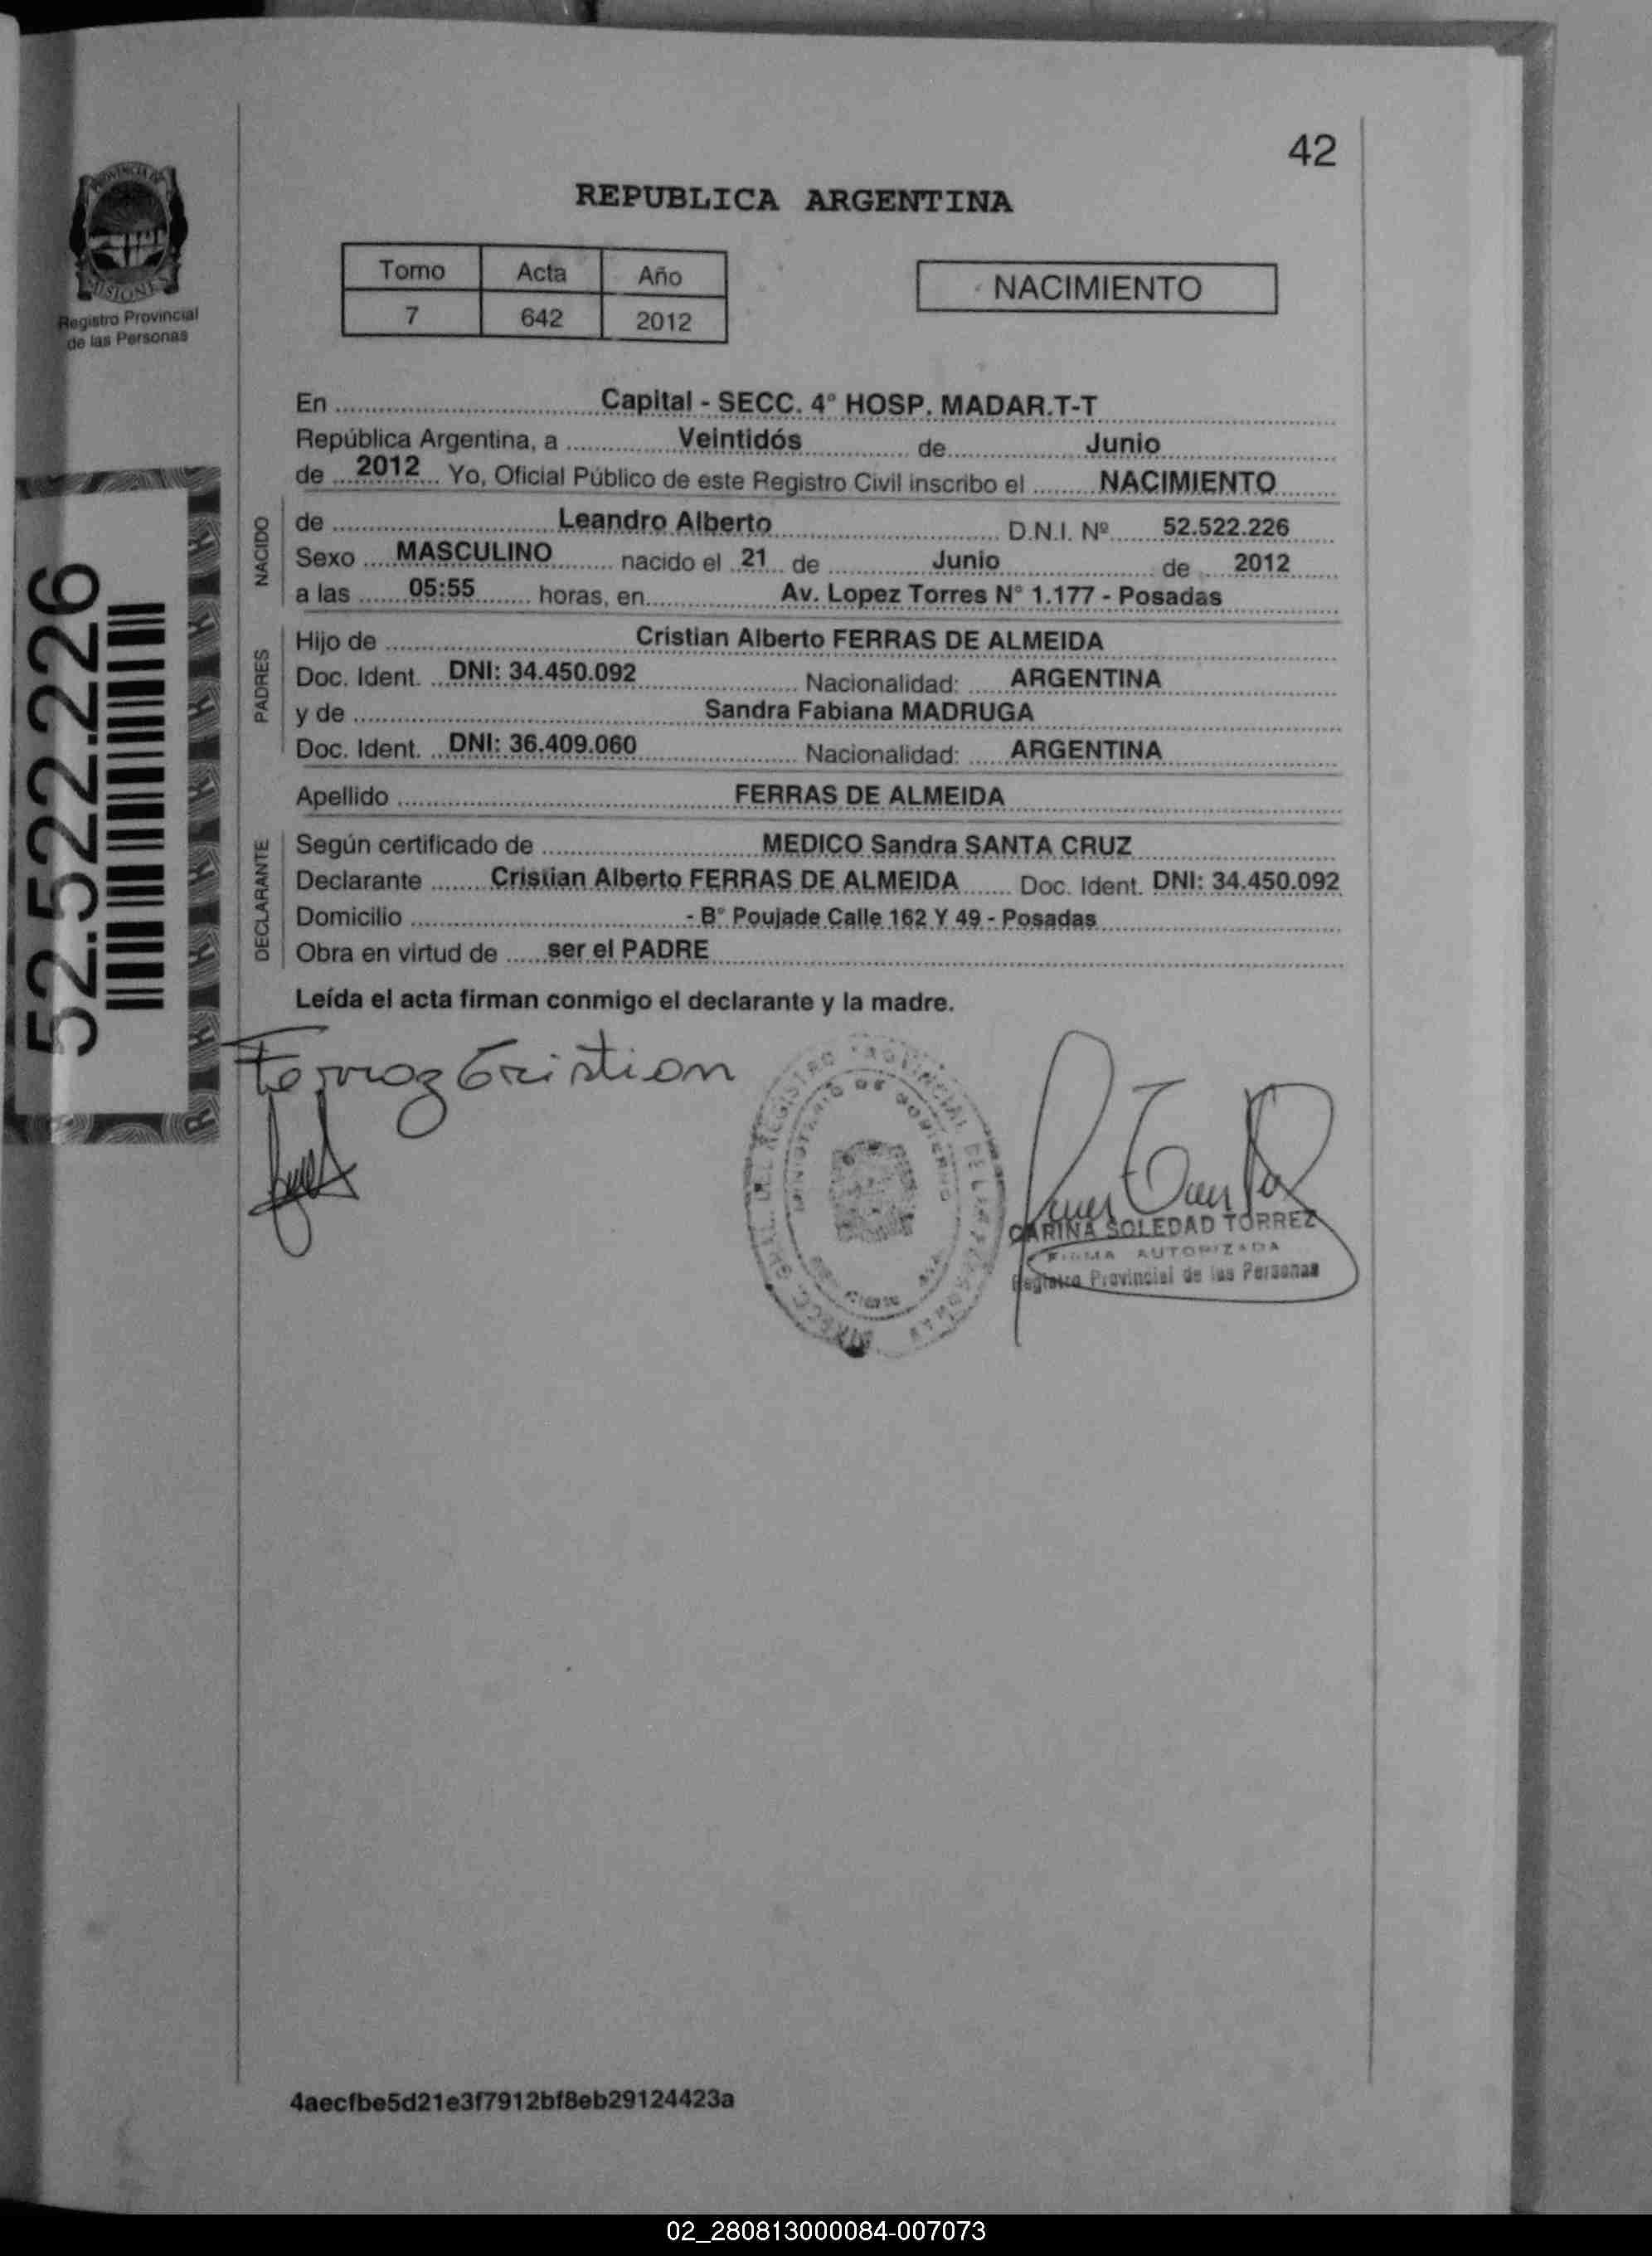 42
PROVINCIA DE
MISIONES
Registro Provincial
de las Personas
REPUBLICA ARGENTINA
Tomo Acta Año
7 642 2012
NACIMIENTO
En Capital - SECC. 4° HOSP. MADAR.T-T
República Argentina, a Veintidós de Junio
de 2012 Yo, Oficial Público de este Registro Civil inscribo el NACIMIENTO
NACIDO
de Leandro Alberto D.N.I. Nº 52.522.226
Sexo MASCULINO nacido el 21 de Junio de 2012
a las 05:55 horas, en Av. Lopez Torres N° 1.177 - Posadas
PADRES
Hijo de Cristian Alberto FERRAS DE ALMEIDA
Doc. Ident. DNI: 34.450.092 Nacionalidad: ARGENTINA
y de Sandra Fabiana MADRUGA
Doc. Ident. DNI: 36.409.060 Nacionalidad: ARGENTINA
Apellido FERRAS DE ALMEIDA
DECLARANTE
Según certificado de MEDICO Sandra SANTA CRUZ
Declarante Cristian Alberto FERRAS DE ALMEIDA Doc. Ident. DNI: 34.450.092
Domicilio - B° Poujade Calle 162 Y 49 - Posadas
Obra en virtud de ser el PADRE
Leída el acta firman conmigo el declarante y la madre.
52.522.226
Cristian
DEL REGISTRO PROVINCIAL DE LAS PERSONAS
MINISTERIO DE GOBIERNO
CARINA SOLEDAD TORREZ
FIRMA AUTORIZADA
Registro Provincial de las Personas
4aecfbe5d21e3f7912bf8eb29124423a
02_280813000084-007073